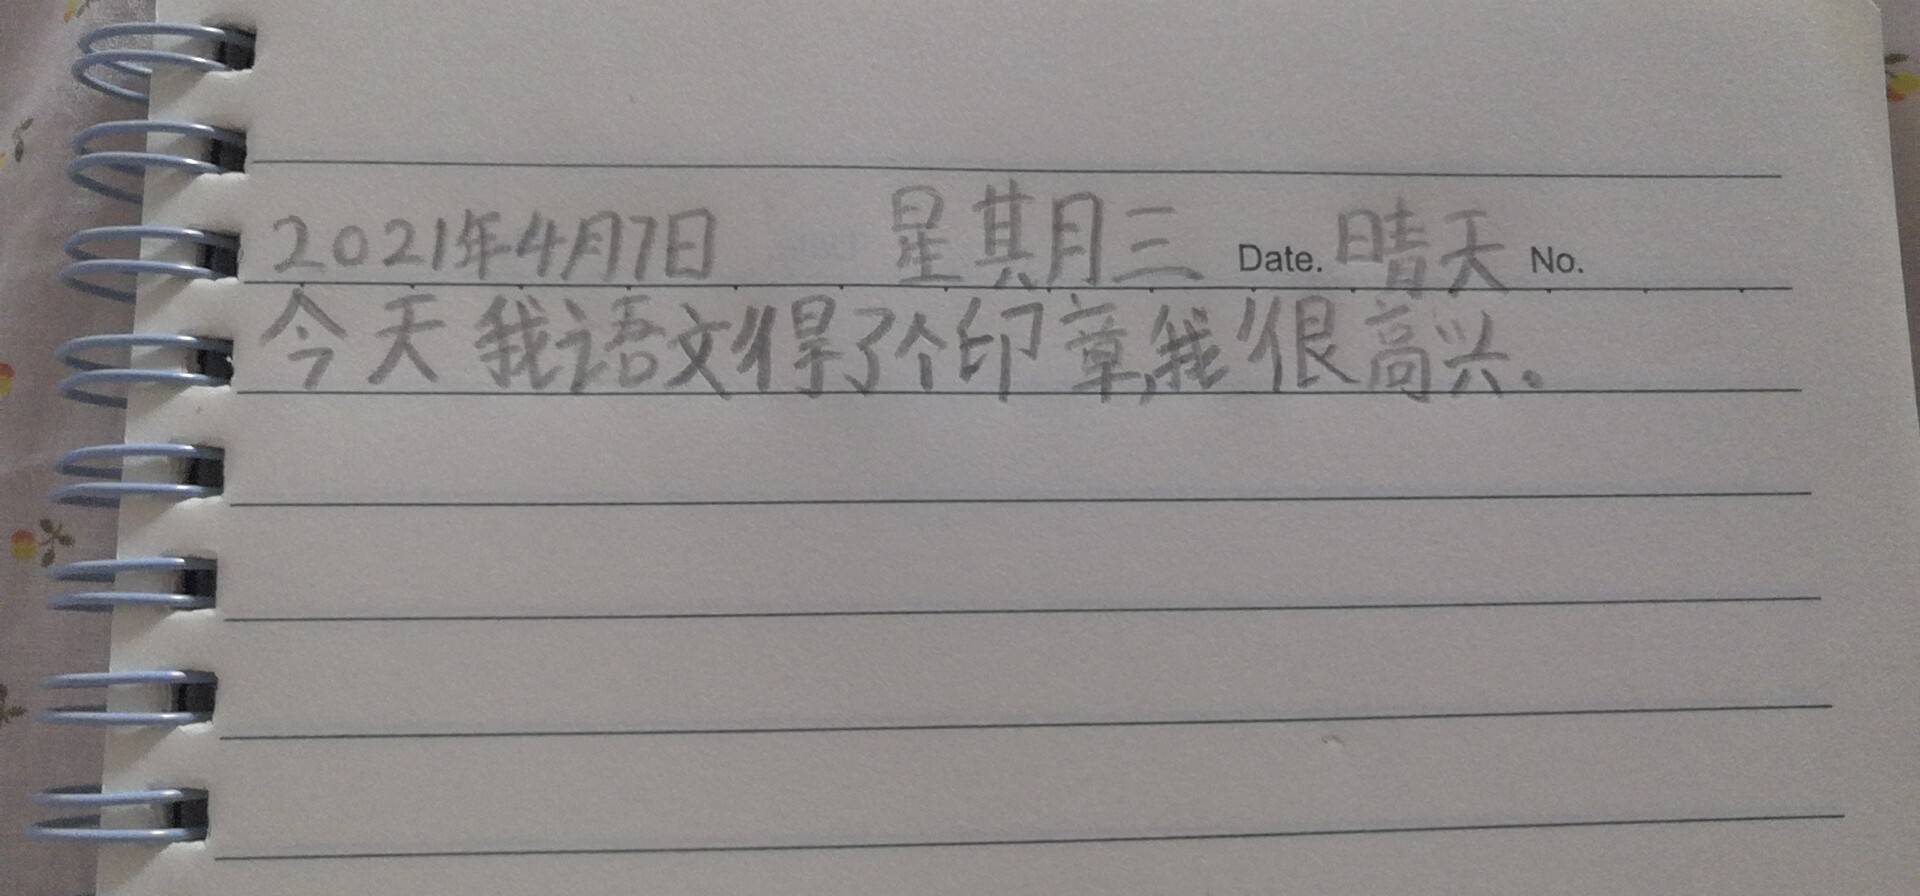 2021年4月7日 星期三 Date. 晴天 No.
今天我语文得了个印章,我很高兴.